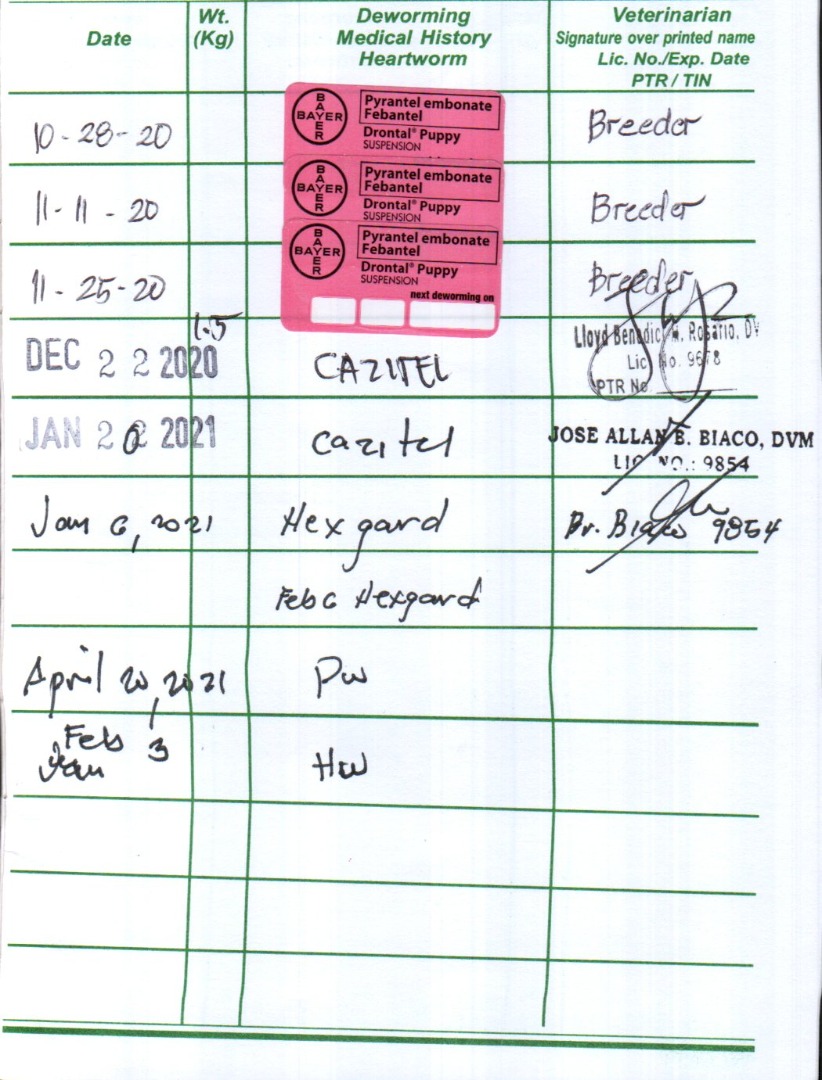 Date
Wt.
(Kg)
Deworming
Medical History
Heartworm
Veterinarian
Signature over printed name
Lic. No./Exp. Date
PTR / TIN
10-28-20
BAYER
BAYER
Pyrantel embonate
Febantel
Drontal® Puppy
SUSPENSION
Breeder
11-11-20
BAYER
BAYER
Pyrantel embonate
Febantel
Drontal® Puppy
SUSPENSION
Breeder
11-25-20
BAYER
BAYER
Pyrantel embonate
Febantel
Drontal® Puppy
SUSPENSION
next deworming on
Breeder
DEC 22 2020
1.5
CAZITEL
Lloyd Benedic H. Rosario, DV
Lic No. 9678
PTR No
JAN 2 2021
Cazitel
JOSE ALLAN E. BIACO, DVM
LIC NO.: 9854
Jan 6, 2021
Hexgard
Dr. Biaco 9854
Feb 6 Hexgard
April 20, 2021
PW
Feb 3
Jan
HW